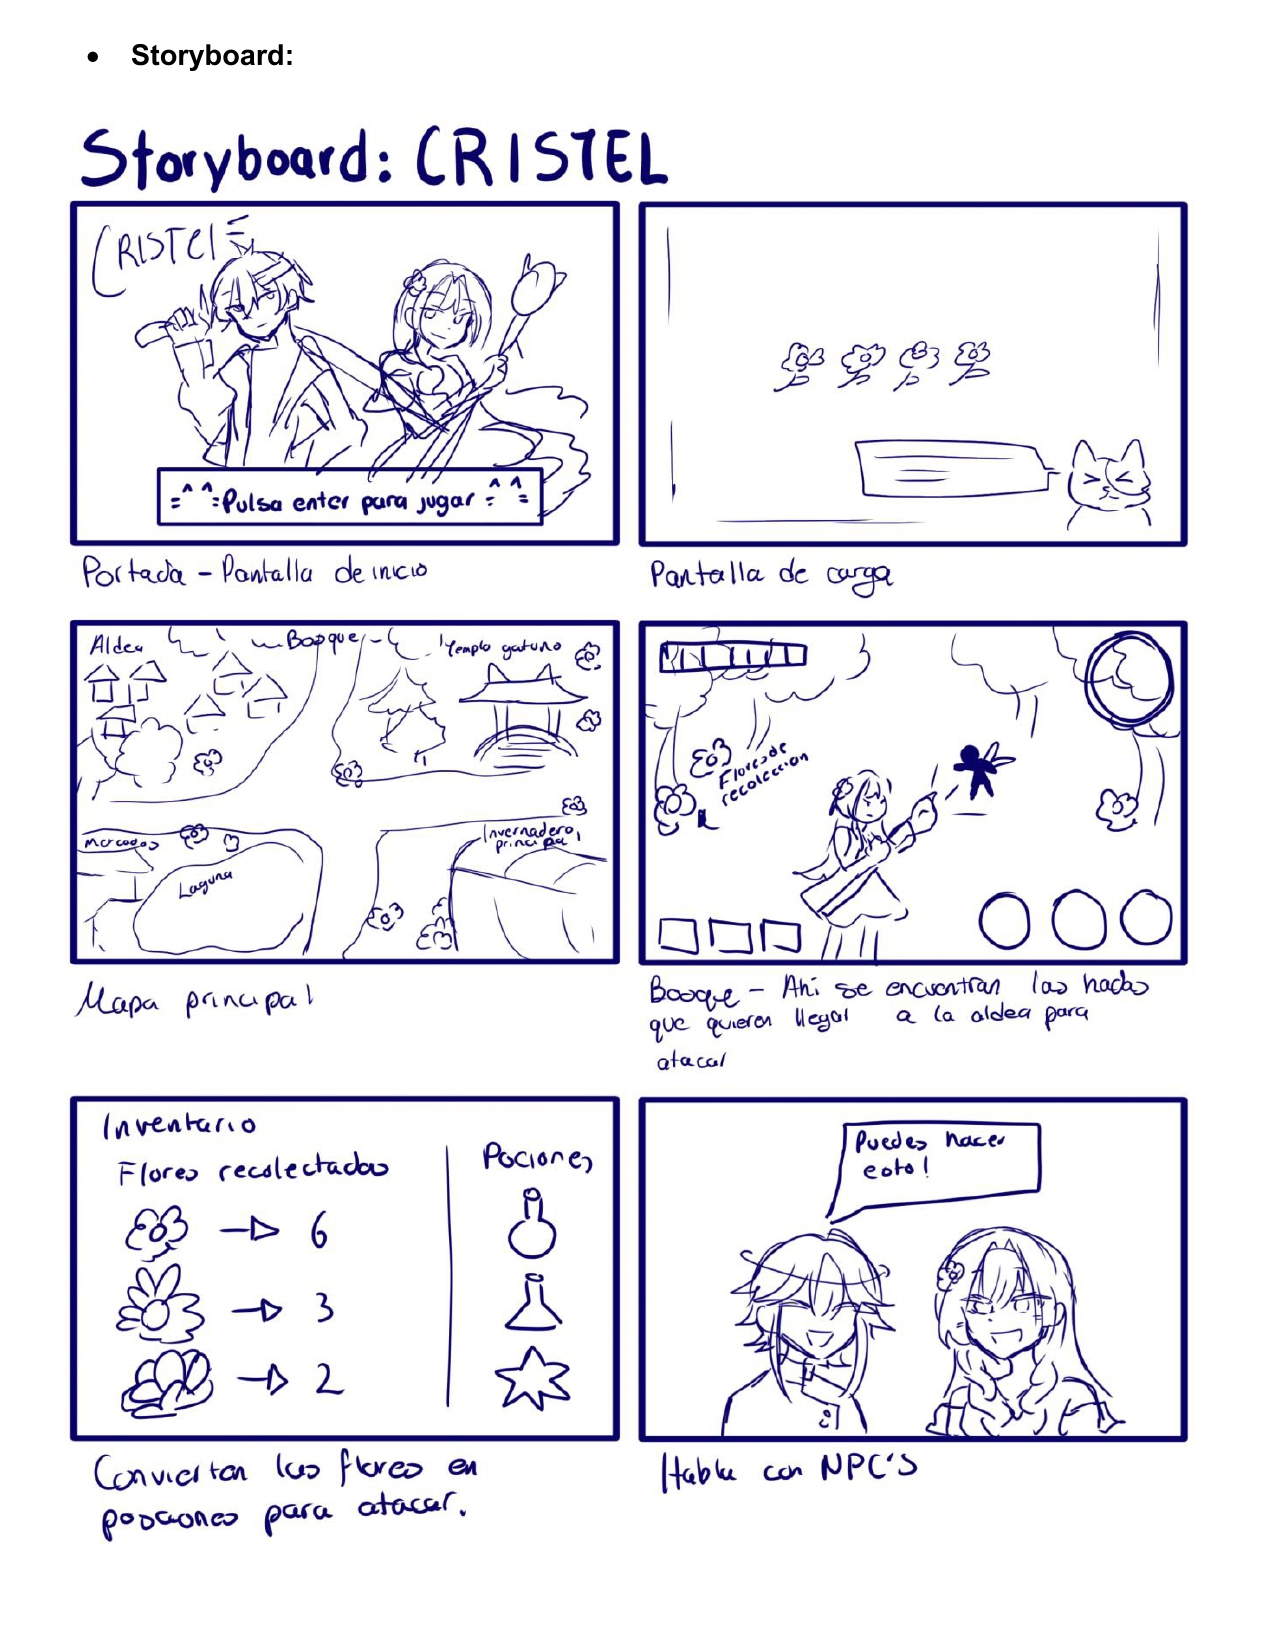 • Storyboard:
Storyboard: CRISTEL
CRISTEL
=^ ^=Pulsa enter para jugar =^ ^=
Portada - Pantalla de inicio
Pantalla de carga
Aldea
Bosque
Templo gatuno
Mercados
Laguna
Invernadero
principal
Mapa principal
Flores de
recoleccion
Bosque - Ahi se encuentran las hadas
que quieren llegar a la aldea para
atacar
Inventario
Flores recolectadas
Pociones
6
3
2
Conviertan las flores en
posciones para atacar.
Puedes hacer
esto!
Habla con NPC'S